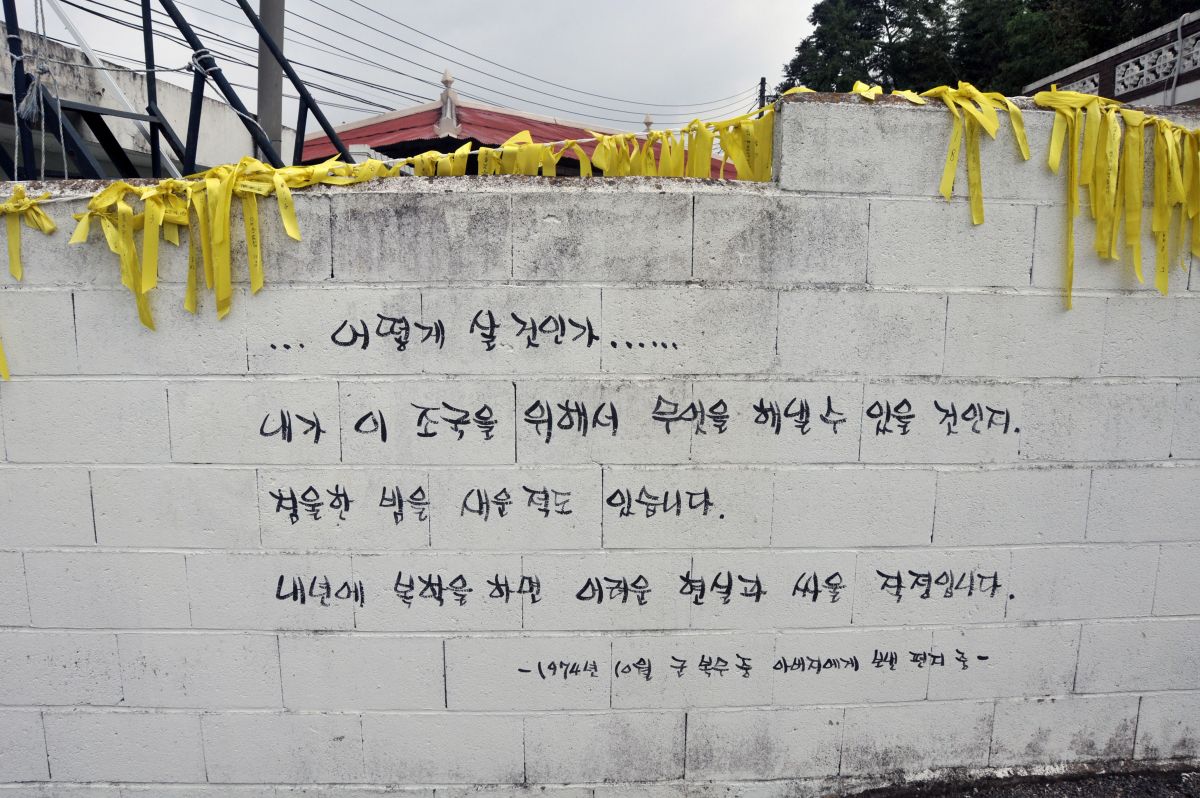 ... 어떻게 살 것인가......
내가 이 조국을 위해서 무엇을 해낼 수 있을 것인지.
침울한 밤을 새운 적도 있습니다.
내년에 복학을 하면 어려운 현실과 싸울 작정입니다.
-1974년 10월 군 복무 중 아버지에게 보낸 편지 중-